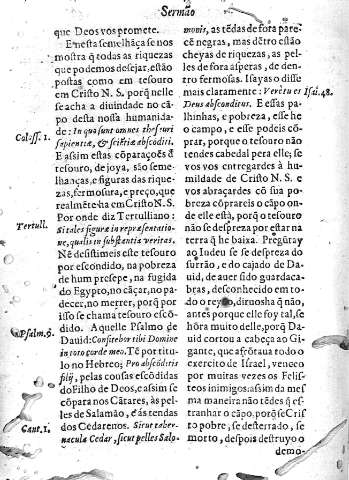 Sermão
que Deos vos promete.
E nesta semelhãça se nos
mostra q̃ todas as riquezas
que podemos desejar, estão
postas como em tesouro
em Cristo N. S. porq̃ nelle
se acha a diuindade no cãpo
desta nossa humanida-
de: In quo sunt omnes thesauri
sapientiæ, & scientiæ absconditi.
E assim estas cõparaçoẽs de
tesouro, de joya, são seme-
lhanças, e figuras das rique-
zas, fermosura, e preço, que
realmẽte ha em Cristo N. S.
Por onde diz Tertulliano:
Si tales figuræ in repræsentatio-
ne, qualis in substantia veritas.
Nẽ desistimeis este tesouro
por escondido, na pobreza
de hum presepe, na fugida
do Egypto, no cãçar, no pa-
decer, no morrer, porq̃ por
isso se chama tesouro escõ-
dido. Aquelle Psalmo de
Dauid: Confitebor tibi Domine
in toto corde meo. Tẽ por titu-
lo no Hebreo; Pro absconditis
filij, pelas cousas escõdidas
do Filho de Deos, e assim se
cõpara nos Cãtares, às pel-
les de Salamão, e às tendas
dos Cedarenos. Sicut taber-
nacula Cedar, sicut pelles Salo-
Col:ss. 1.
Tertull.
Psalm. 9.
Cant. 1.
monis, as tẽdas de fora pare-
cẽ negras, mas dẽtro estão
cheyas de riquezas, as pel-
les de fora asperas, de den-
tro fermosas. Isayas o disse
mais claramente: Verè tu es
Deus absconditus. E essas pa-
lhinhas, e pobreza, esse he
o campo, e esse podeis cõ-
prar, porque o tesouro não
tendes cabedal pera elle; se
vos vos entregardes à hu-
mildade de Cristo N. S. e
vos abraçardes cõ sua po-
breza cõprareis o cãpo on-
de elle està, porq̃ o tesouro
não se despreza por estar na
terra q̃ he baixa. Pregũtay
ao Iudeu se se despreza do
surrão, e do cajado de Da-
uid, de auer sido guardaca-
bras, desconhecido em to-
do o reyno, diruosha q̃ não,
antes porque elle foy tal, se
hõra muito delle, porq̃ Da-
uid cortou a cabeça ao Gi-
gante, que afrõtaua todo o
exercito de Israel, venceo
por muitas vezes os Felis-
teos inimigos: assim da mes
ma maneira não tẽdes q̃ es-
tranhar o cãpo, porq̃ se Cris
to pobre, se desterrado, se
morto, despois destruyo o
demo-
Isai. 48.